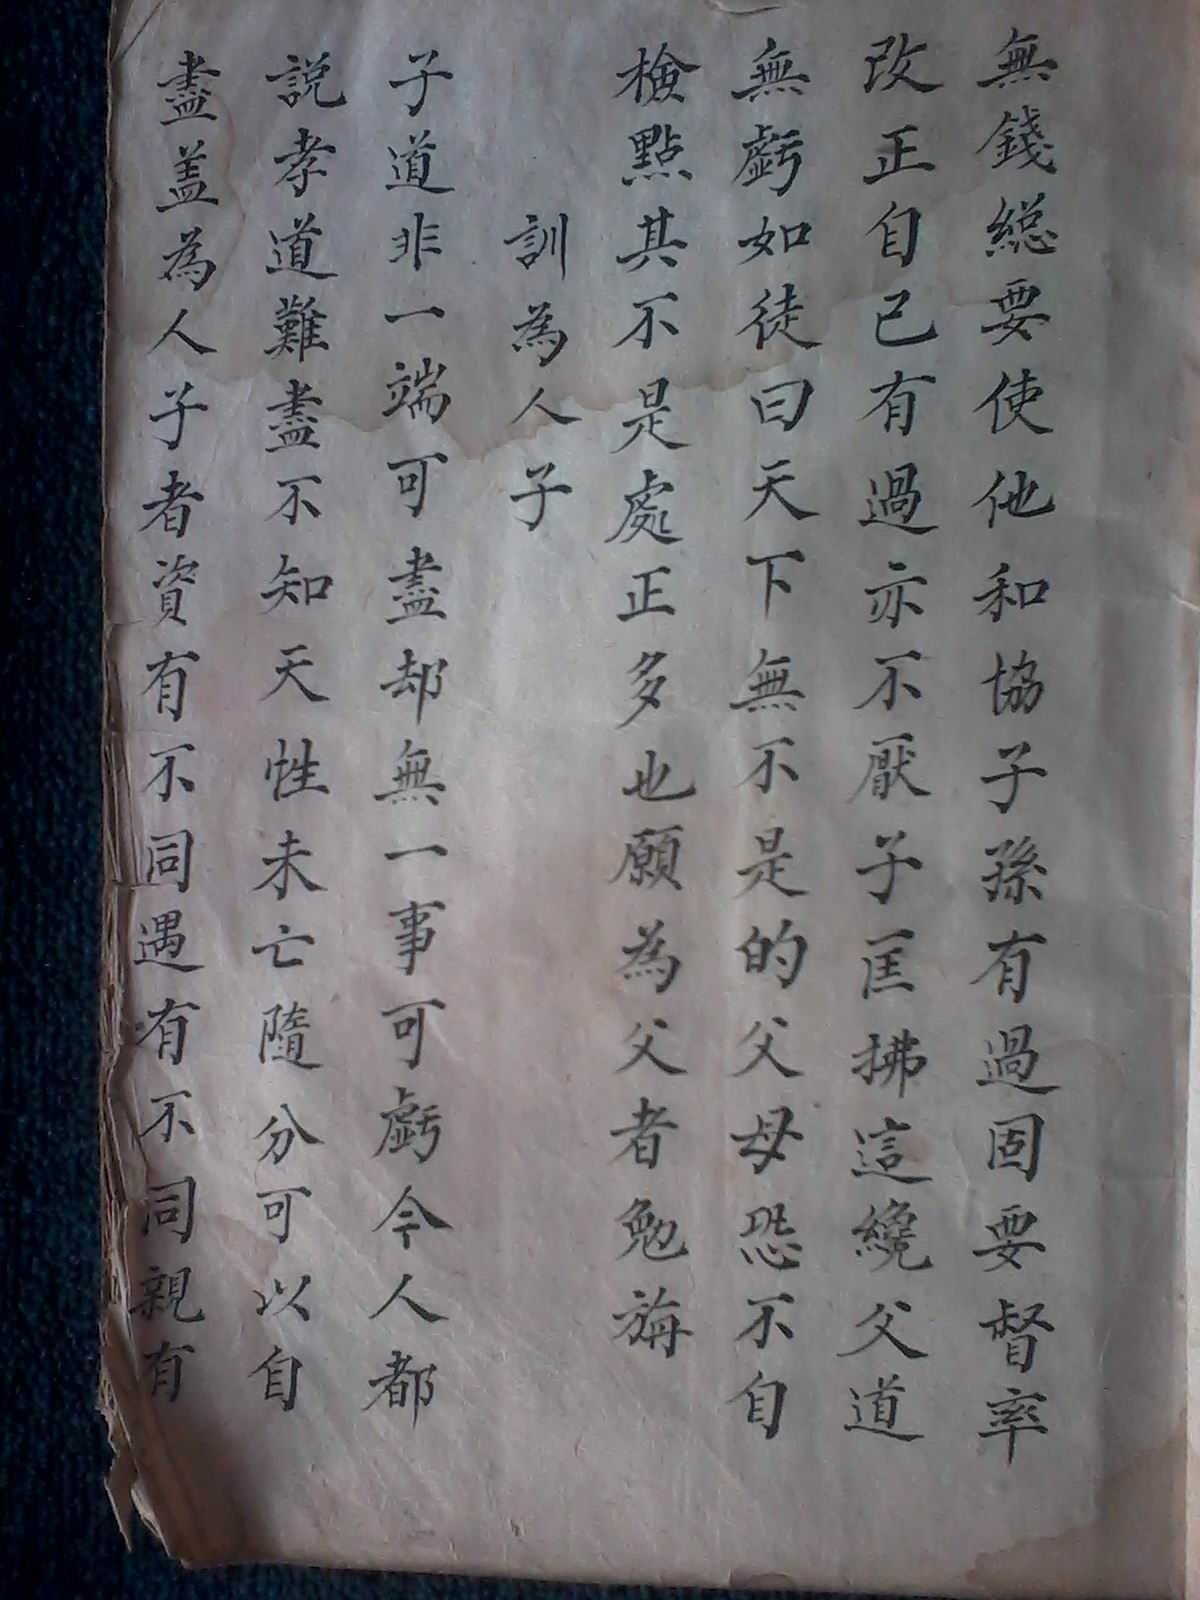 無錢緫要使他和協子孫有過固要督率
改正自己有過亦不厭子匡拂這纔父道
無虧如徒曰天下無不是的父母恐不自
檢點其不是處正多也願為父者勉旃
訓為人子
子道非一端可盡却無一事可虧今人都
説孝道難盡不知天性未亡隨分可以自
盡盖為人子者資有不同遇有不同親有